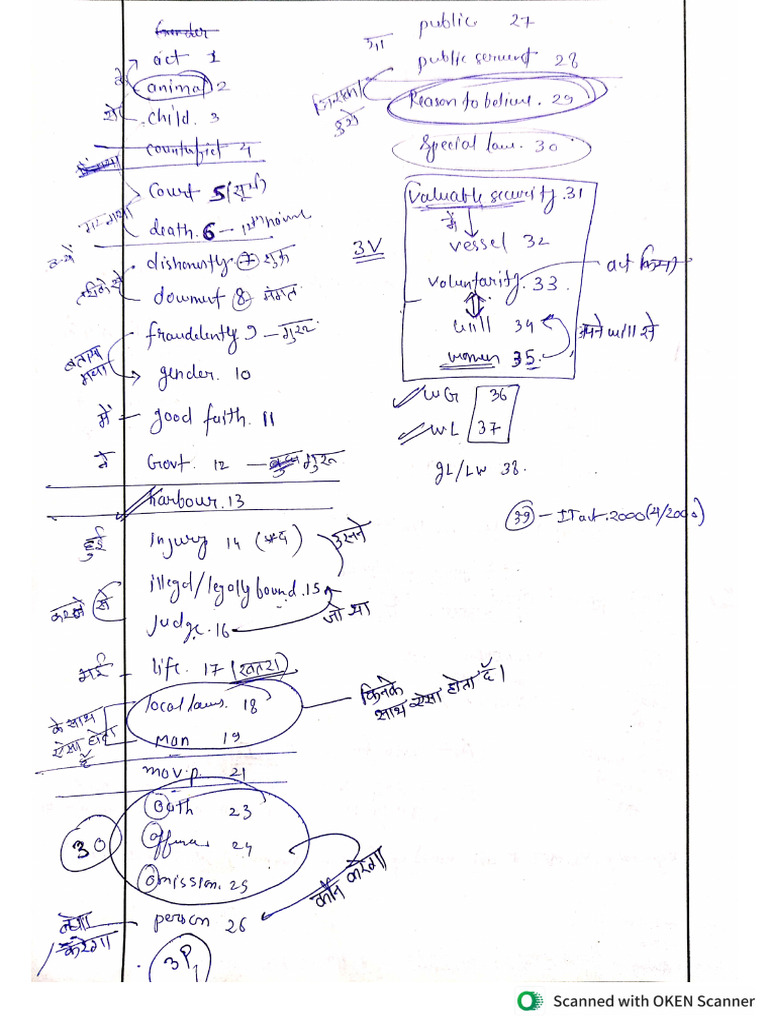 Gender
act 1
animal 2
से child. 3
counterfiet 4
Court 5 (सूर्य)
death. 6 - 12th house
dishonestly 7 शुक्र
तरीके से document 8 मंगल
fraudelently 9 - गुरू
बताया गया
gender. 10
में - good faith. 11
ने Govt. 12 - गुरू
harbour. 13
हुई injury 14
illegal/legally bound. 15
करने से
Judge. 16
जो था
भई life. 17 (खतरा)
local laws. 18
के साथ ऐसा होता है
Man 19
किनके साथ ऐसा होता है।
mov.p. 21
30
Oath 23
Offence 24
Omission. 25
कौन करेगा
person 26
करेगा
3P
public 27
public servent 28
Reason to believe. 29
Special law. 30
Valuable security. 31
में
vessel 32
3V
voluntarity. 33
act किया
will 34
अपने will से
women 35.
WG 36
WL 37
gL/LW 38.
39 - IT act. 2000 (4/2000)
Scanned with OKEN Scanner